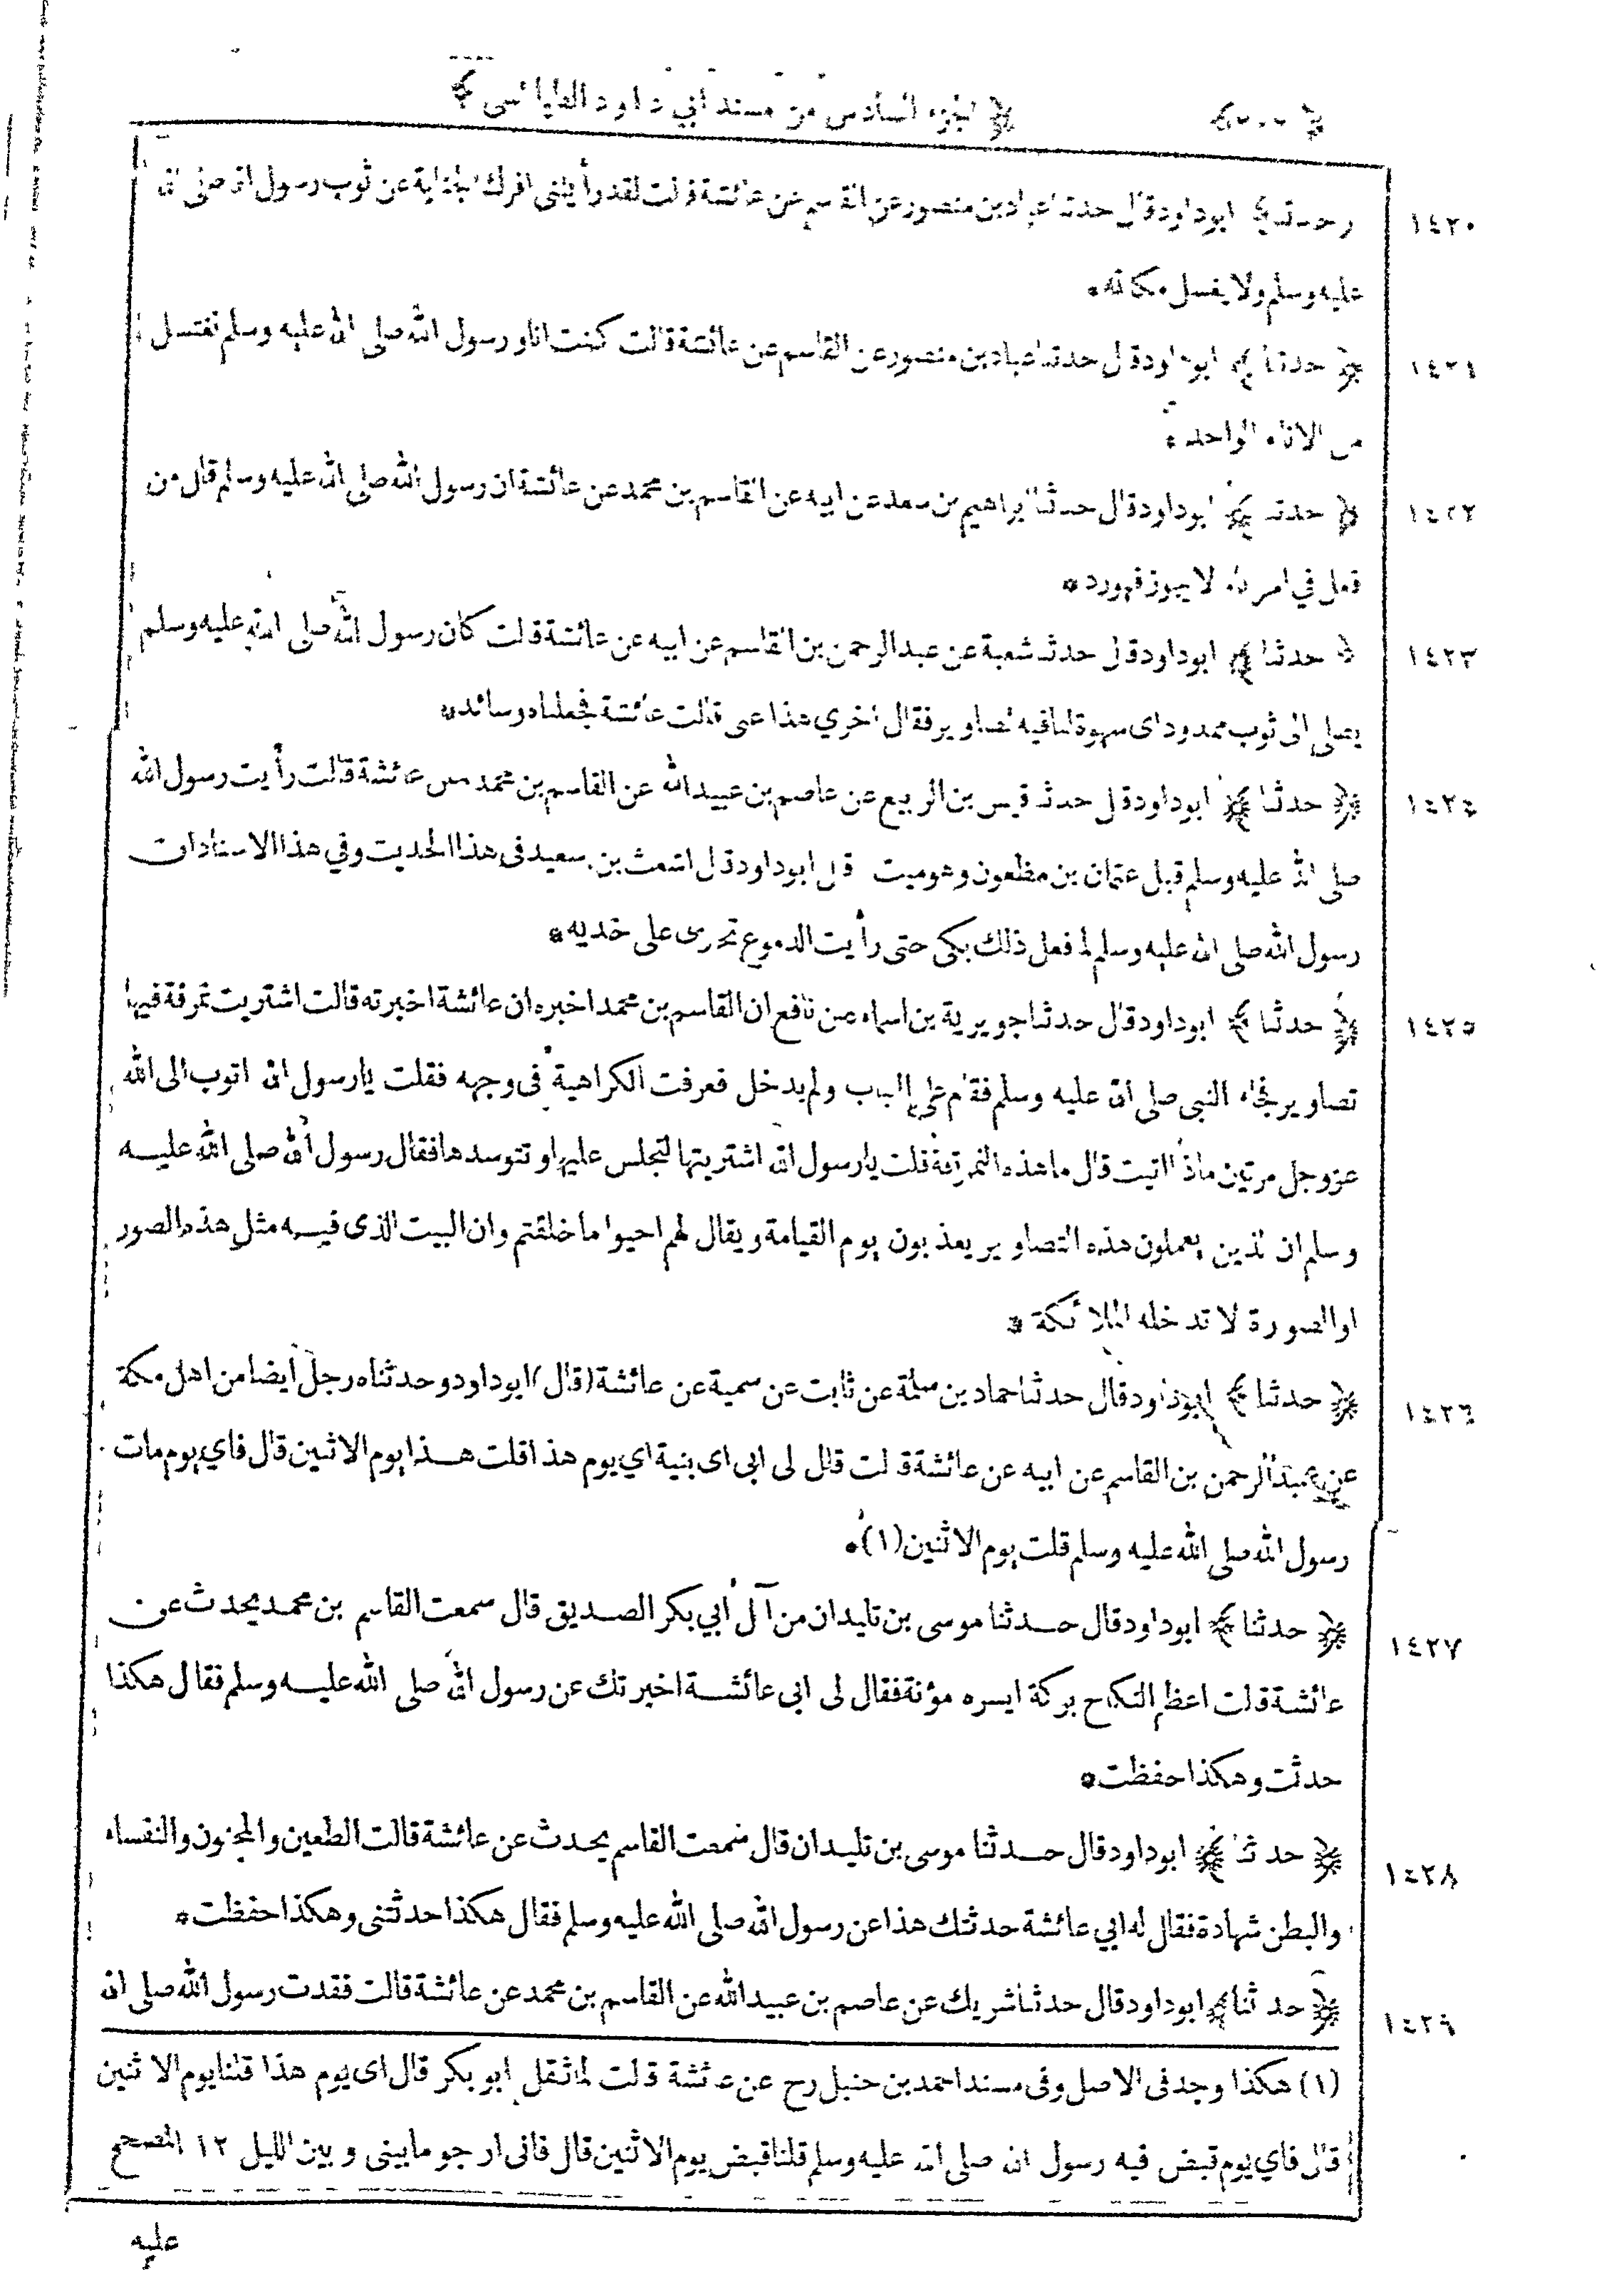 ﴿الجزء السادس من مسند أبي داود الطيالسى﴾
١٤٢٠ ﴿حدثنا﴾ ابوداود قال حدثنا عباد بن منصور عن القاسم عن عائشة قالت لقد رأيتنى افرك الجنابة عن ثوب رسول الله صلى الله
عليه وسلم ولا يغسل مكانه *
١٤٢١ ﴿حدثنا﴾ ابوداود قال حدثنا عباد بن منصور عن القاسم عن عائشة قالت كنت انا ورسول الله صلى الله عليه وسلم نغتسل
من الاناء الواحد *
١٤٢٢ ﴿حدثنا﴾ ابوداود قال حدثنا ابراهيم بن سعد عن ابيه عن القاسم بن محمد عن عائشة ان رسول الله صلى الله عليه وسلم قال من
فعل في امرنا ما لا يجوز فهو رد *
١٤٢٣ ﴿حدثنا﴾ ابوداود قال حدثنا شعبة عن عبدالرحمن بن القاسم عن ابيه عن عائشة قالت كان رسول الله صلى الله عليه وسلم
يصلى الى ثوب ممدود اى سهوة لنا فيه تصاوير فقال اخري هذا عنى قالت عائشة فجعلناه وسائد *
١٤٢٤ ﴿حدثنا﴾ ابوداود قال حدثنا قيس بن الربيع عن عاصم بن عبيدالله عن القاسم بن محمد عن عائشة قالت رأيت رسول الله
صلى الله عليه وسلم قبل عثمان بن مظعون وهو ميت قال ابوداود قال اشعث بن سعيد فى هذا الحديث وفي هذا الاسناد ان
رسول الله صلى الله عليه وسلم لما فعل ذلك بكى حتى رأيت الدموع تجرى على خديه *
١٤٢٥ ﴿حدثنا﴾ ابوداود قال حدثنا جويرية بن اسماء عن نافع ان القاسم بن محمد اخبره ان عائشة اخبرته قالت اشتريت نمرقة فيها
تصاوير فجاء النبى صلى الله عليه وسلم فقام على الباب ولم يدخل فعرفت الكراهية فى وجهه فقلت يا رسول الله اتوب الى الله
عزوجل مرتين ماذا اتيت قال ما هذه النمرقة قلت يا رسول الله اشتريتها لتجلس عليها وتتوسدها فقال رسول الله صلى الله عليه
وسلم ان الذين يعملون هذه التصاوير يعذبون يوم القيامة ويقال لهم احيوا ما خلقتم وان البيت الذى فيه مثل هذه الصور
او الصورة لا تدخله الملائكة *
١٤٢٦ ﴿حدثنا﴾ ابوداود قال حدثنا حماد بن سلمة عن ثابت عن سمية عن عائشة (قال) ابوداود وحدثناه رجل أيضا من اهل مكة
عن عبدالرحمن بن القاسم عن ابيه عن عائشة قالت قال لى ابى اى بنية اي يوم هذا قلت هذا يوم الاثنين قال فاي يوم مات
رسول الله صلى الله عليه وسلم قلت يوم الاثنين (١) *
١٤٢٧ ﴿حدثنا﴾ ابوداود قال حدثنا موسى بن تليدان من آل أبي بكر الصديق قال سمعت القاسم بن محمد يحدث عن
عائشة قالت اعظم النكاح بركة ايسره مؤنة فقال لى ابى عائشة اخبرتك عن رسول الله صلى الله عليه وسلم فقال هكذا
حدثت وهكذا حفظت *
١٤٢٨ ﴿حدثنا﴾ ابوداود قال حدثنا موسى بن تليدان قال سمعت القاسم يحدث عن عائشة قالت الطعين والمجنون والنفساء
والبطن شهادة فقال له ابي عائشة حدثتك هذا عن رسول الله صلى الله عليه وسلم فقال هكذا حدثتنى وهكذا حفظت *
١٤٢٩ ﴿حدثنا﴾ ابوداود قال حدثنا شريك عن عاصم بن عبيدالله عن القاسم بن محمد عن عائشة قالت فقدت رسول الله صلى الله
(١) هكذا وجد فى الاصل وفى مسند احمد بن حنبل رح عن عائشة قالت لما ثقل ابو بكر قال اى يوم هذا قلنا يوم الاثنين
قال فاي يوم قبض فيه رسول الله صلى الله عليه وسلم قلنا قبض يوم الاثنين قال فانى ارجو ما بينى وبين الليل ١٢ المصحح
عليه